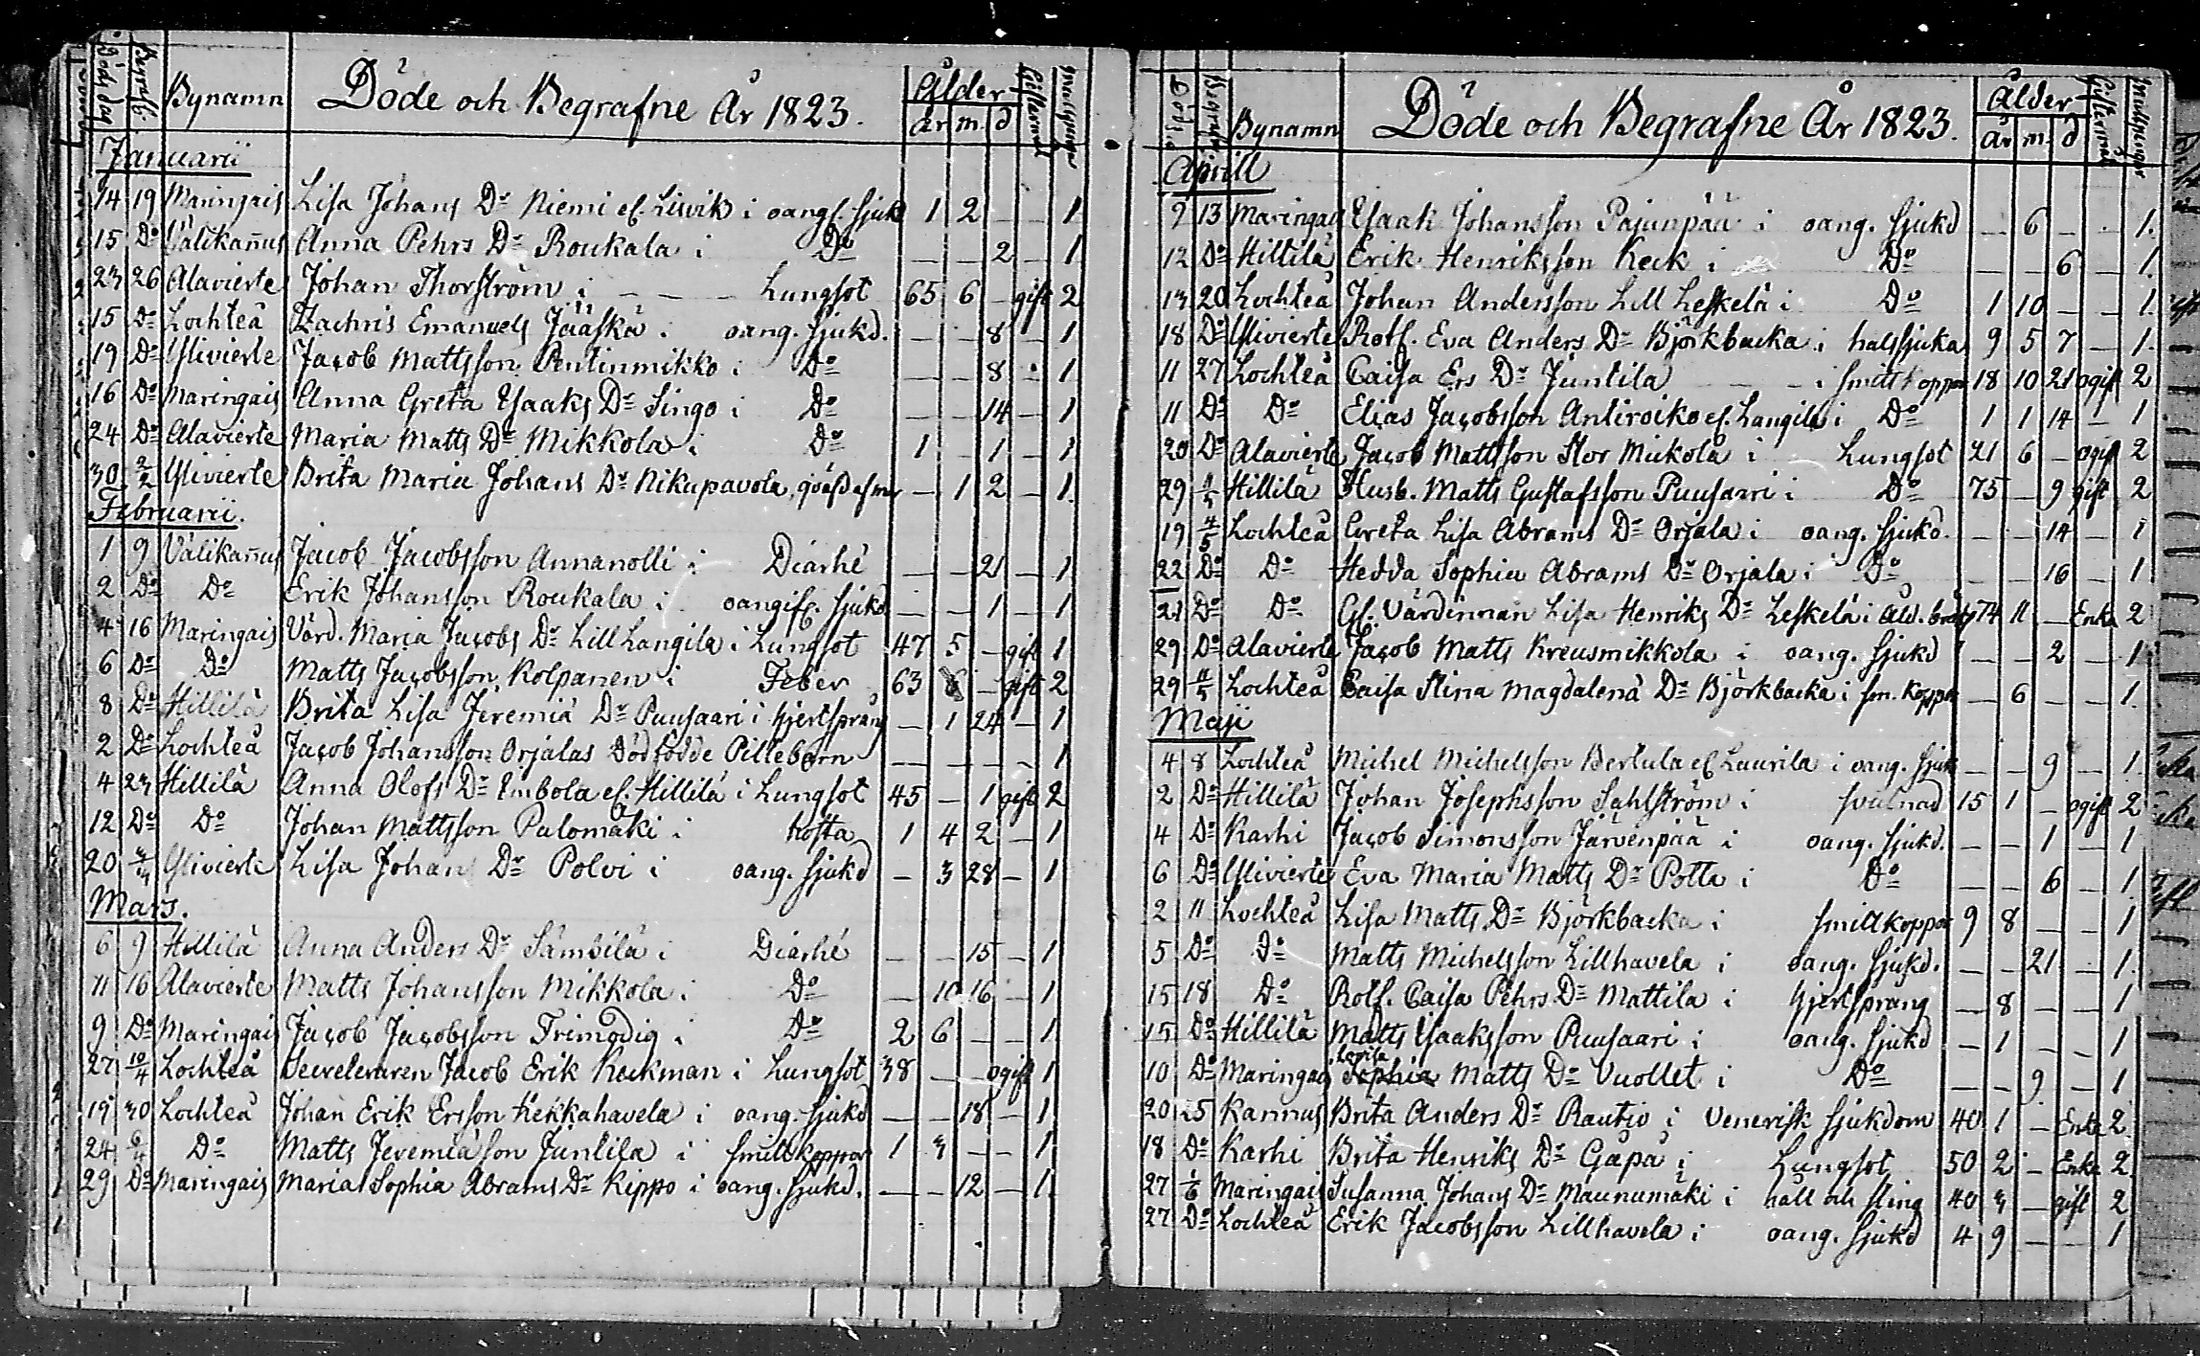 Bynamn Döde och Begrafne År 1823. Ålder
år m. d
Januarii
14 19 Maringais Lisa Johans Dr Niemi el. Lisvik i oangf. sjukd 1 2 _ _ 1
15 Do Välikañus Anna Pehrs Dr Roukala i Do _ _ 2 _ 1
23 26 Alavierte Johan Thorström i _ _ _ Lungsot 65 6 _ gift 2
15 Do Lochteå Zachris Emanuels Jääskä i oang. sjukd. _ _ 8 _ 1
19 Do Ylivierte Jacob Mattsson Pentinmikko i Do _ _ 8 _ 1
16 Do Maringais Anna Greta Ysaaks Dr Singo i Do _ _ 14 _ 1
24 Do Alavierte Maria Matts Dr Mikkola i Do 1 _ 1 _ 1
30 2/2 Ylivierte Brita Maria Johans Dr Nikupavola _ 1 2 _ 1.
Februarii.
1 9 Välikañus Jacob Jacobsson Annanolli i Diarhé _ _ 21 _ 1
2 Do Do Erik Johansson Roukala i oangif. sjukd _ _ 1 _ 1
4 16 Maringais Värd. Maria Jacobs Dr Lill Langila i Lungsot 47 5 _ gift 1
6 Do Do Matts Jacobsson Kolpanen i Feber 63 _ gift 2
8 Do Hillilä Brita Lisa Jeremiä Dr Puusaari i hjertsprång _ 1 24 _ 1
2 Do Lochteå Jacob Johansson Orjalas Dödfödde Pilteborn _ _ _ _ 1
4 23 Hillilä Anna Olofs Dr Embola el. Hillilä i Lungsot 45 _ 1 gift 2
12 Do Do Johan Mattsson Palomäki i hosta 1 4 2 _ 1
20 2/3 Ylivierte Lisa Johans Dr Polvi i oang. sjukd _ 3 28 _ 1
Mars.
6 9 Hillilä Anna Anders Dr Sämbilä i Diarhé _ _ 15 _ 1
11 16 Alavierte Matts Johansson Mikkola i Do _ 10 16 _ 1
9 Do Maringais Jacob Jacobsson Trimodig i Do 2 6 _ _ 1.
27 10/4 Lochteå Secreteraren Jacob Erik Keckman i Lungsot 38 _ _ ogift 1
19 30 Lochteå Johan Erik Ersson Kekkahavela i oang. sjukd _ _ 18 _ 1
24 6/4 Do Matts Jeremiä son Juntila i smittkoppor 1 3 _ _ 1
29 Do Maringais Maria Sophia Abrams Dr Kippo i oang. sjukd. _ _ 12 _ 1.
Bynamn Döde och Begrafne År 1823. Ålder
År m. d
Aprill
7 13 Maringais Ysaak Johansson Pajunpää i oang. sjukd _ 6 _ _ 1.
12 Do Hillilä Erik Henriksson Keck i Do _ _ 6 _ 1.
13 20 Lochteå Johan Andersson Lill Leskelä i Do 1 10 _ _ 1.
18 Do Ylivierte Rotf. Eva Anders Dr Björkbacka i halssjuka 9 5 7 _ 1
11 27 Lochteå Caisa Ers Dr Juntila _ _ i smittkoppor 18 10 21 ogift 2
11 Do Do Elias Jacobsson Antiroiko el. Langila i Do 1 1 14 _ 1
20 Do Alavierte Jacob Mattsson Stor Mickola i Lungsot 21 6 _ ogift 2
29 4/5 Hillilä Husb. Matts Gustafsson Puusaari i Do 75 _ 9 gift 2
19 4/5 Lochteå Greta Lisa Abrams Dr Orjala i oang. sjukd. _ _ 14 _ 1
22 Do Do Hedda Sophia Abrams Dr Orjala i Do _ _ 16 _ 1
21 Do Do Gl. Värdinnan Lisa Henriks Dr Leskelä i Åld. bräck 74 11 _ Enka 2
29 Do Alavierte Jacob Matts Kreusmikkola i oang. sjukd _ _ 2 _ 1
29 11/5 Lochteå Caisa Stina Magdalena Dr Björkbacka i sm. koppor _ 6 _ _ 1.
Maji
4 8 Lochteå Michel Michelsson Bertula el Laurila i oang. sjuk _ _ 9 _ 1
2 Do Hillilä Johan Josephsson Sahlström i svulnad 15 1 _ ogift 2
4 Do Karhi Jacob Simonsson Järvenpää i oang. sjukd. _ _ 1 _ 1
6 Do Ylivierte Eva Maria Matts Dr Potta i Do _ _ 6 _ 1
2 11 Lochteå Lisa Matts Dr Björkbacka i smittkoppor 9 8 _ _ 1
5 Do Do Matts Michelsson Lillhavela i oang. sjukd. _ _ 21 _ 1.
15 18 Do Rotf. Caisa Pehrs Dr Mattila i hjertsprang _ 8 _ _ 1
15 Do Hillilä Matts Ysaaksson Puusaari i oang. sjukd _ 1 _ _ 1
Lovisa
10 Do Maringais Sophia Matts Dr Vuollet i Do _ _ 9 _ 1
20 25 Kannus Brita Anders Dr Rautio i Venerisk sjukdom 40 1 _ Enka 2
18 Do Karhi Brita Henriks Dr Gäpä i Lungsot 50 2 _ Enka 2
27 1/6 Maringais Susanna Johans Dr Maunumäki i håll och sting 40 3 _ gift 2
27 Do Lochteå Erik Jacobsson Lillhavela i oang. sjukd 4 9 _ _ 1